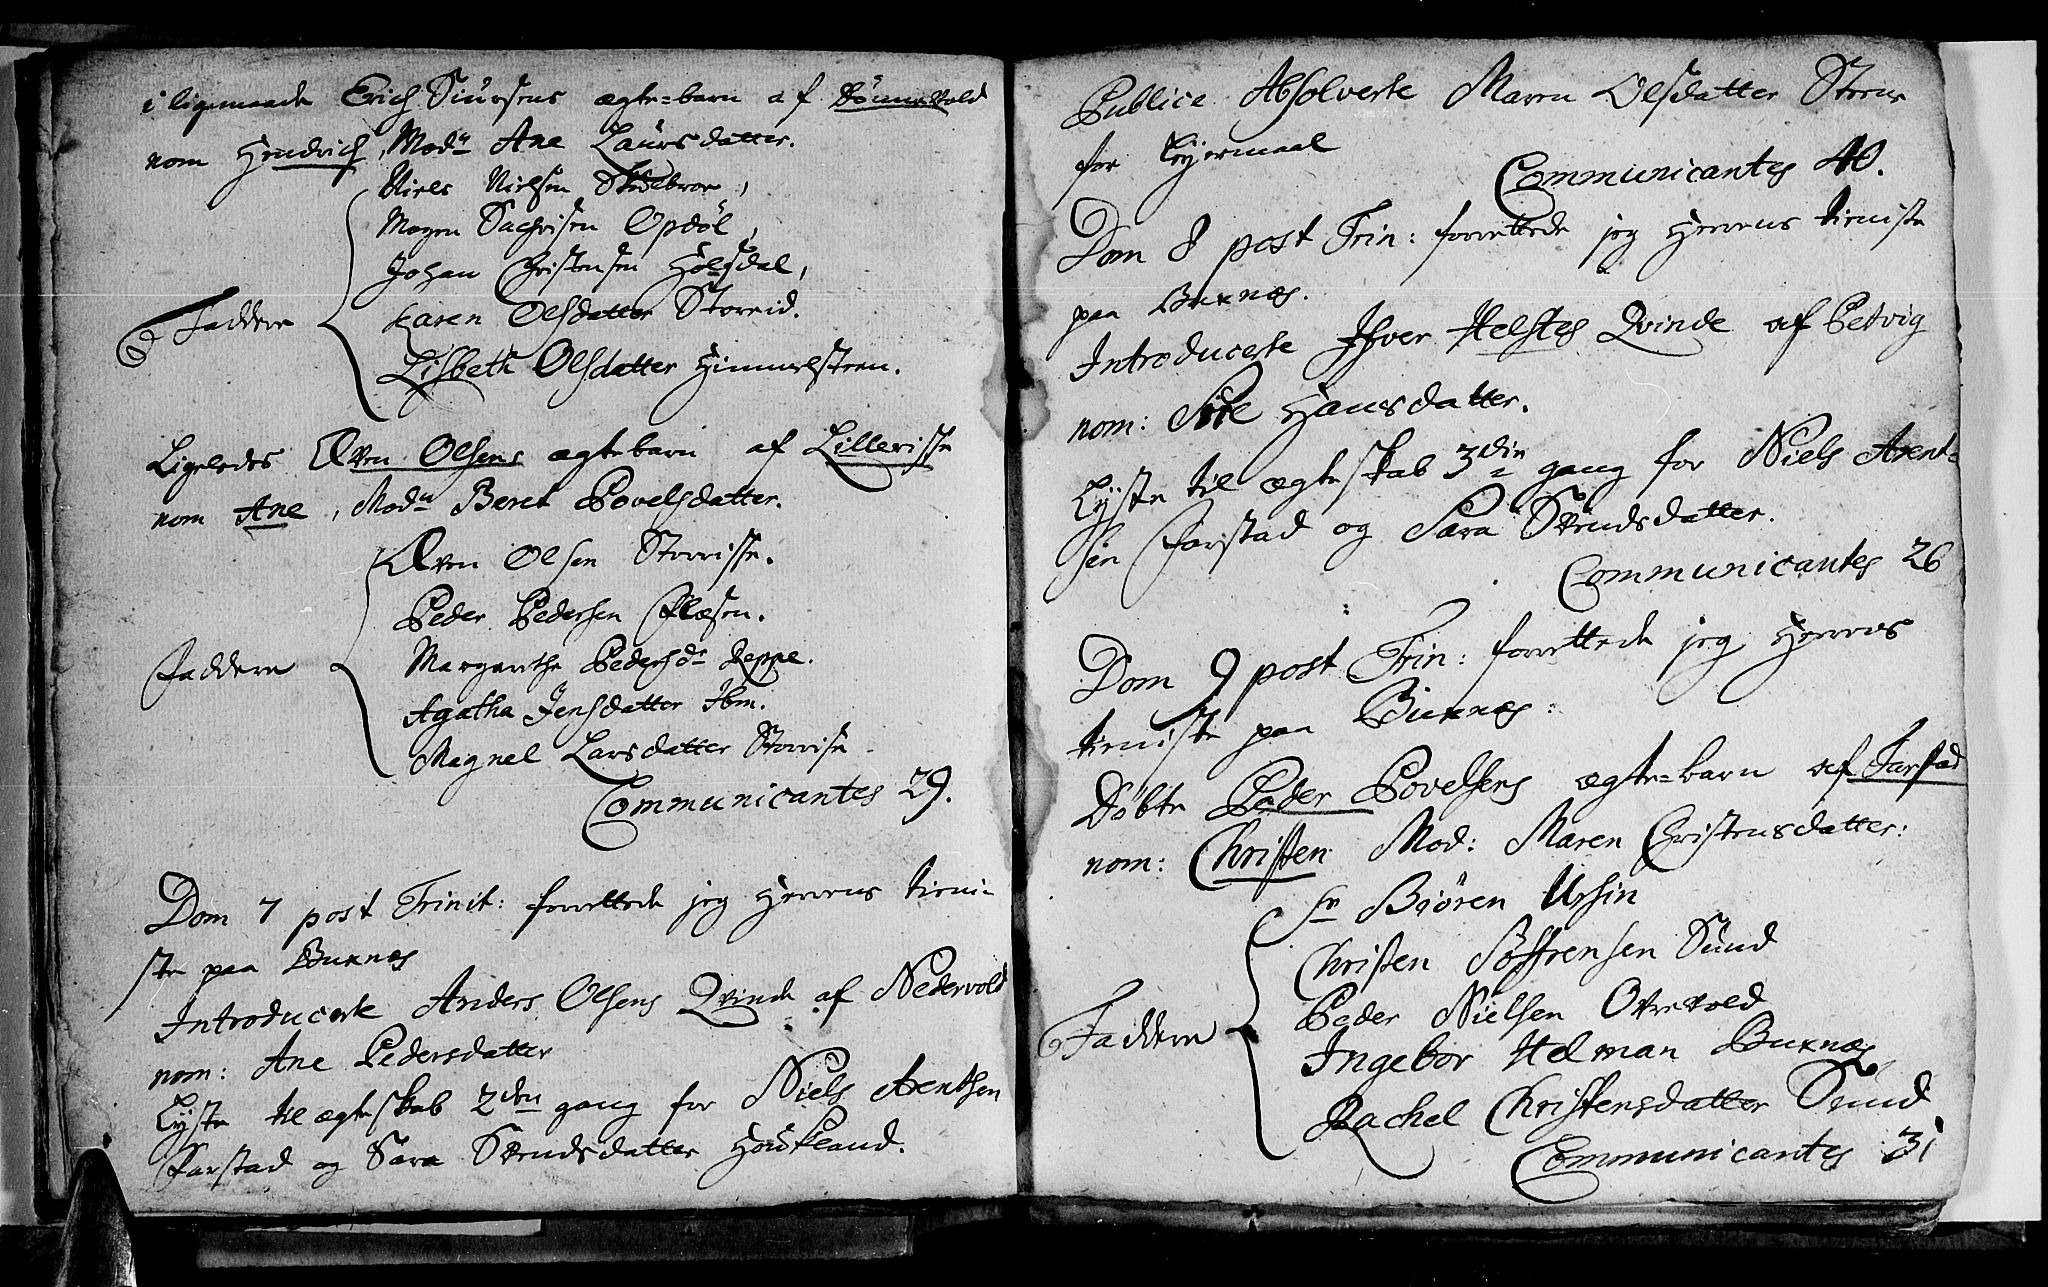 i ligemaade Erich Siursens ægte-barn af
nom Hendrich, Modn Ane Laursdatter.
Niels Nielsen
Mogen Opdøl,
Johan Christensen Holsdal,
Faddere Karen Olsdatter Storeid.
Lisbeth Olsdatter Himmelsteen.
Ligeledes Even Olsens ægtebarn af Lilleriise
nom Ane, Modn Beret Povelsdatter.
Even Olsen Storrisse.
Peder Pedersen Flæsen.
Faddere Margarethe Pedersdr Leppe.
Agatha Jensdatter Ibm.
Magnel Larsdatter Storrise
Communicantes 29.
Dom 7 post Trinit: forrettede jeg Herrens tieni-
ste paa Buxnæs
Introducerte Anders Olsens Qvinde af Nedervold
nom: Ane Pedersdatter
Lyste til ægteskab 2den gang for Niels Arentsen
Farstad og Sara Svendsdatter Houkland.
Publice Absolverte Maren Olsdatter Steene
for Leyermaal
Communicantes 40.
Dom 8 post Trin: forrettede jeg Herrens tieniste
paa Buxnæs.
Introducerte Ifver Helstes Qvinde af Petvig
nom: Hansdatter.
Lyste til ægteskab 3din gang for Niels Arent-
sen Farstad og Sara Svendsdatter.
Communicantes 26
Dom 9 post Trin: forrettede jeg Herrens
tieniste paa Buxnæs:
Døbte Peder Povelsens ægte-barn af Farstad
nom: Christen Mod: Maren Christensdatter:
Sr Biören Ursin
Christen Söffrensen Sund
Faddere Peder Nielsen Overvold
Ingebor Helman Buxnæs
Rachel Christensdatter Sund
Communicantes 31